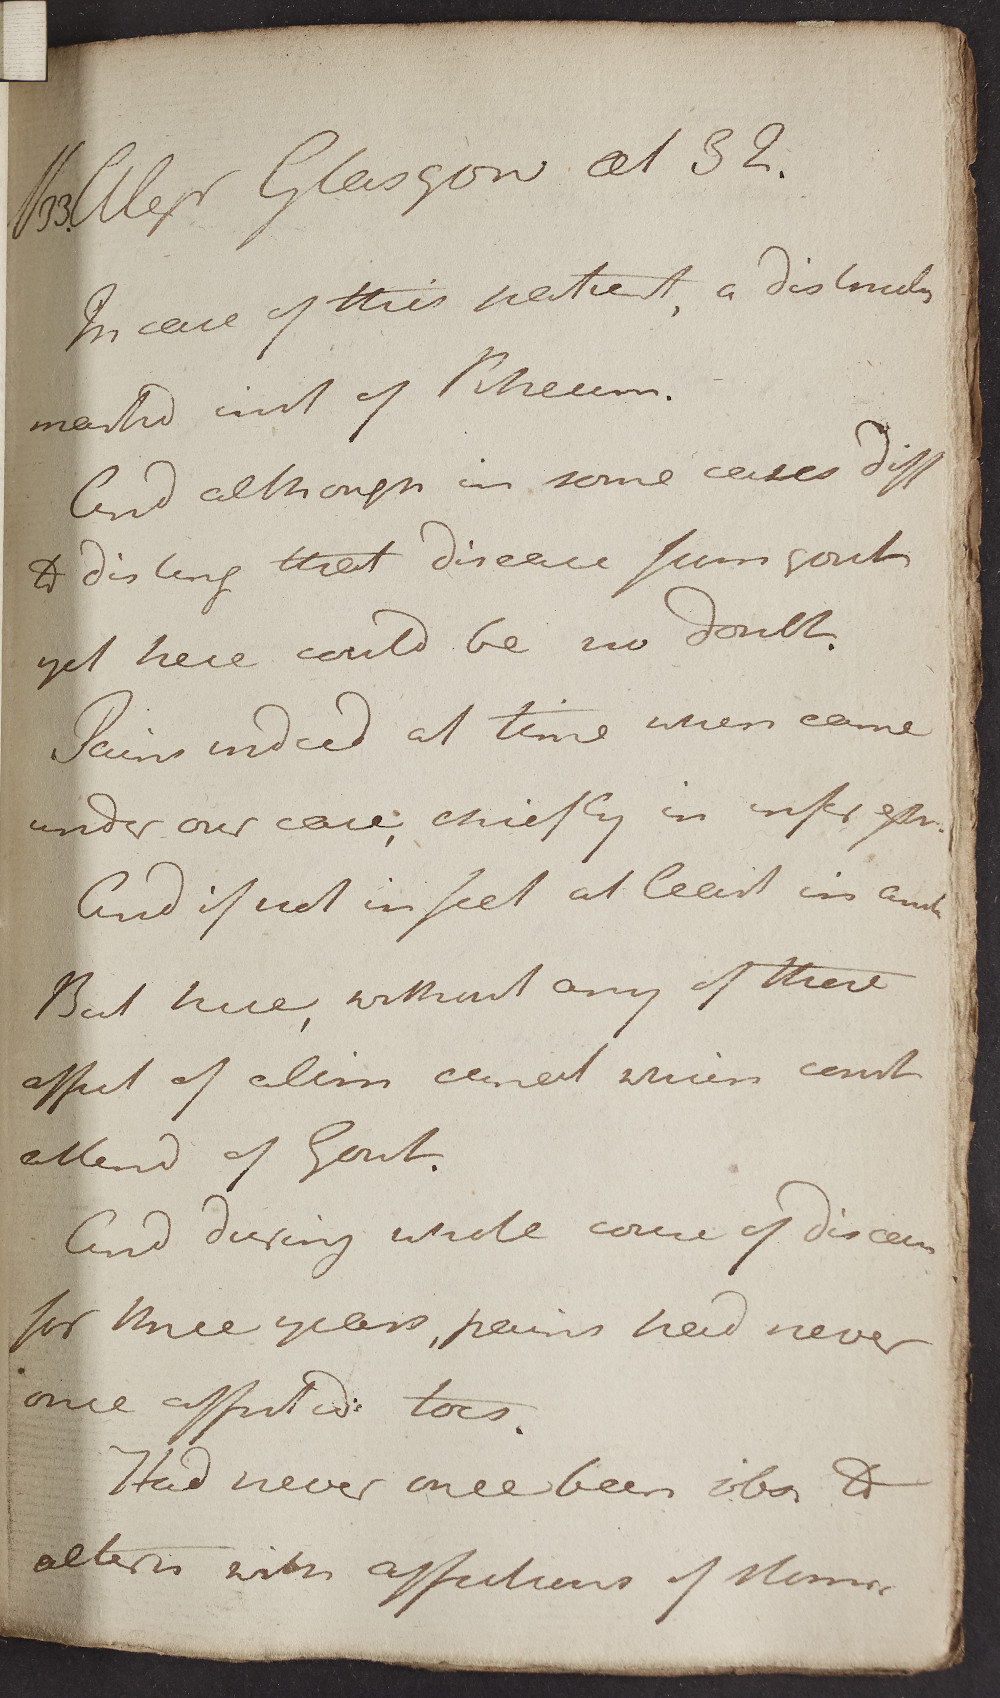 33. Alexr Glasgow aet 32.
In case of this patient, a distinctly
markd inst of Rheum.
And although in some cases diff
to disting that disease from gout
yet here could be no doubt.
Pains indeed at time when came
under our care, chiefly in infer extr.
And if not in feet at least in ancl
But here, without any of these
affect of alim canal which const
attend of Gout.
And during whole course of diseas
for three years, pains had never
once affected toes.
Had never once been obs to
altern with affections of stomac